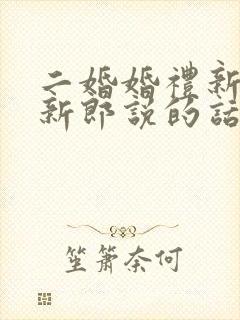 二婚婚禮新
新郎說的話
笙簫奈何